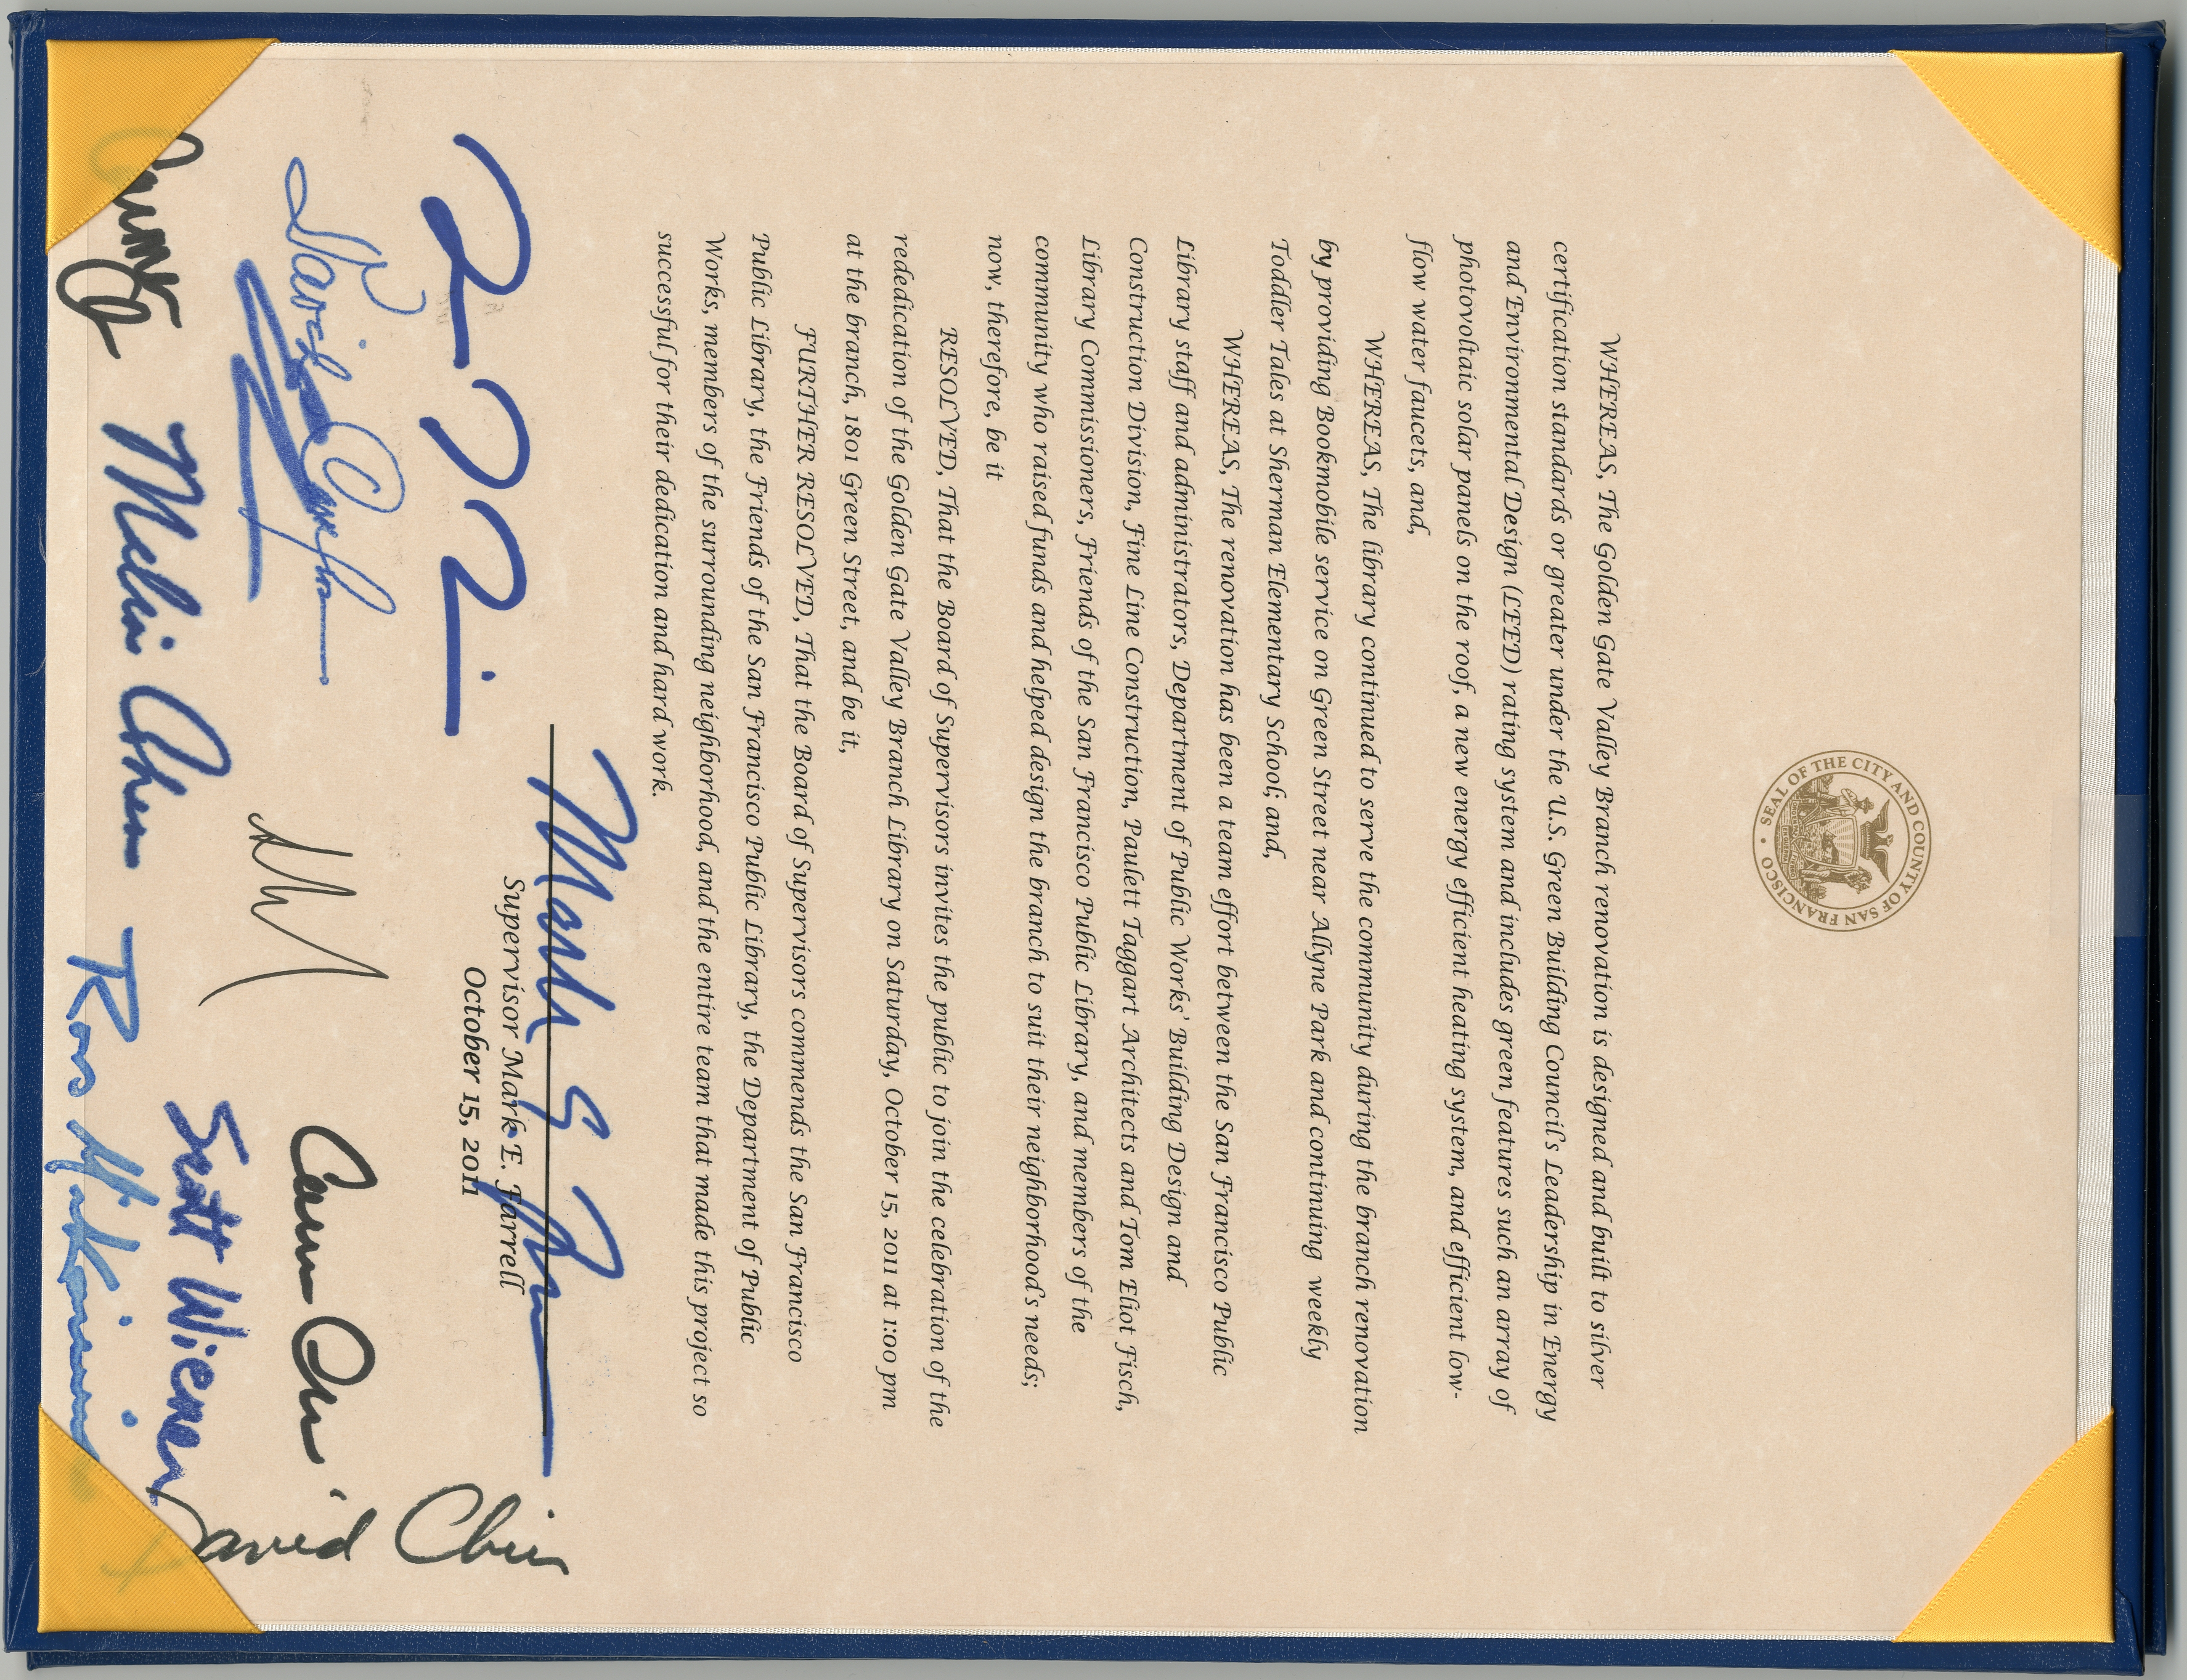 SEAL OF THE CITY AND COUNTY OF SAN FRANCISCO
WHEREAS, The Golden Gate Valley Branch renovation is designed and built to silver
certification standards or greater under the U.S. Green Building Council's Leadership in Energy
and Environmental Design (LEED) rating system and includes green features such an array of
photovoltaic solar panels on the roof, a new energy efficient heating system, and efficient low-
flow water faucets, and,
WHEREAS, The library continued to serve the community during the branch renovation
by providing Bookmobile service on Green Street near Allyne Park and continuing weekly
Toddler Tales at Sherman Elementary School; and,
WHEREAS, The renovation has been a team effort between the San Francisco Public
Library staff and administrators, Department of Public Works' Building Design and
Construction Division, Fine Line Construction, Paulett Taggart Architects and Tom Eliot Fisch,
Library Commissioners, Friends of the San Francisco Public Library, and members of the
community who raised funds and helped design the branch to suit their neighborhood's needs;
now, therefore, be it
RESOLVED, That the Board of Supervisors invites the public to join the celebration of the
rededication of the Golden Gate Valley Branch Library on Saturday, October 15, 2011 at 1:00 pm
at the branch, 1801 Green Street, and be it,
FURTHER RESOLVED, That the Board of Supervisors commends the San Francisco
Public Library, the Friends of the San Francisco Public Library, the Department of Public
Works, members of the surrounding neighborhood, and the entire team that made this project so
successful for their dedication and hard work.
Mark E Farrell
Supervisor Mark E. Farrell
October 15, 2011
David Campos
Carmen Chu
David Chiu
Malia Cohen
Scott Wiener
Ross Mirkarimi